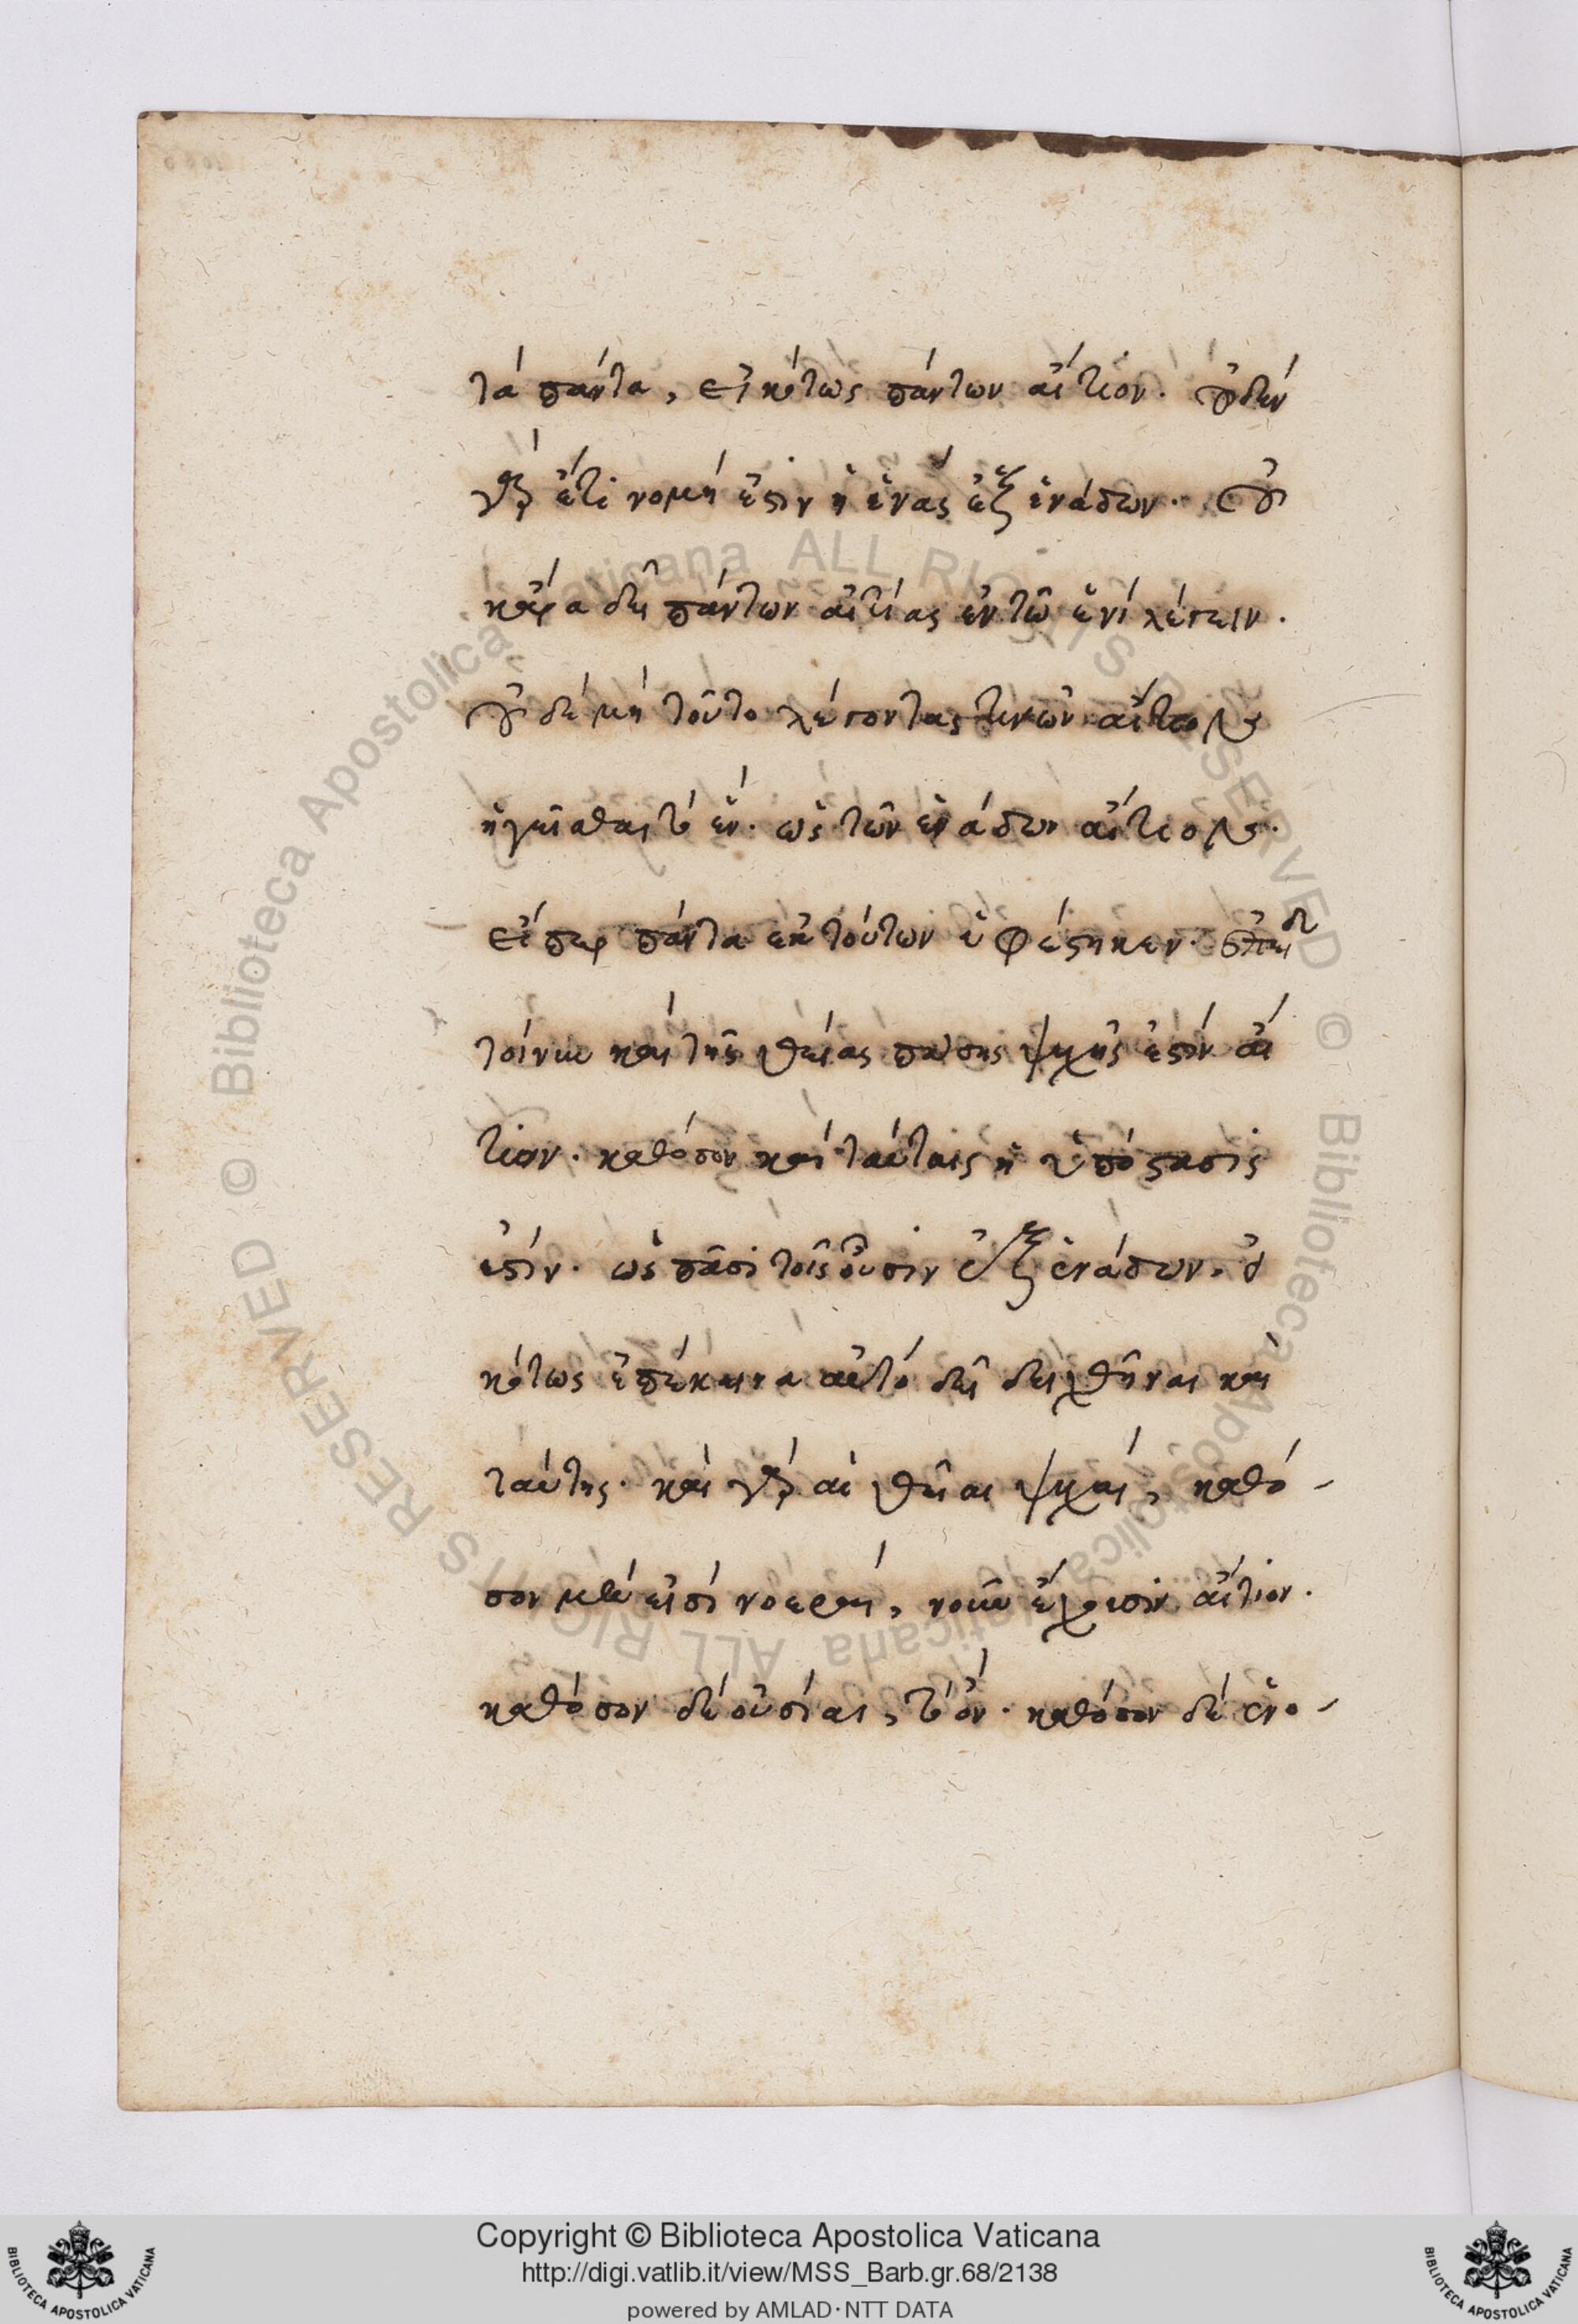 τὰ πάντα, εἰκότως πάντων αἴτιον. οὐδὲν
γὰρ ἔτι νομή ἐστιν ἢ ἑνὰς ἐξ ἑνάδων. οὐ
κἄρα δεῖ πάντων αἰτίας ἐν τῷ ἑνὶ λέγειν.
οὐδὲ μὴ τοῦτο λέγοντας τινῶν αἴτιον
ἡγεῖσθαι τὸ ἕν. ὡς τῶν ἑνάδων αἴτιον.
εἴπερ πάντα ἐκ τούτων ὑφέστηκεν. ἐπειδὴ
τοίνυν καὶ τῆς θείας πάσης ψυχῆς ἐστὶν αἴ
τιον. καθόσον καὶ ταύταις ἡ ὑπόστασις
ἐστίν. ὡς πᾶσι τοῖς οὖσιν ἐξ ἑνάδων. εἰ
κότως ἐπέκεινα αὐτὸ δεῖ δειχθῆναι καὶ
ταύτης. καὶ γὰρ αἱ θεῖαι ψυχαί, καθό-
σον μὲν εἰσὶ νοεραί, νοῦν ἔχουσιν αἴτιον.
καθόσον δὲ οὐσίαι, τὸ ὄν. καθόσον δὲ ἑνο-
Copyright © Biblioteca Apostolica Vaticana
http://digi.vatlib.it/view/MSS_Barb.gr.68/2138
powered by AMLAD·NTT DATA
BIBLIOTECA APOSTOLICA VATICANA
BIBLIOTECA APOSTOLICA VATICANA
© Biblioteca Apostolica Vaticana ALL RIGHTS RESERVED
© Biblioteca Apostolica Vaticana ALL RIGHTS RESERVED